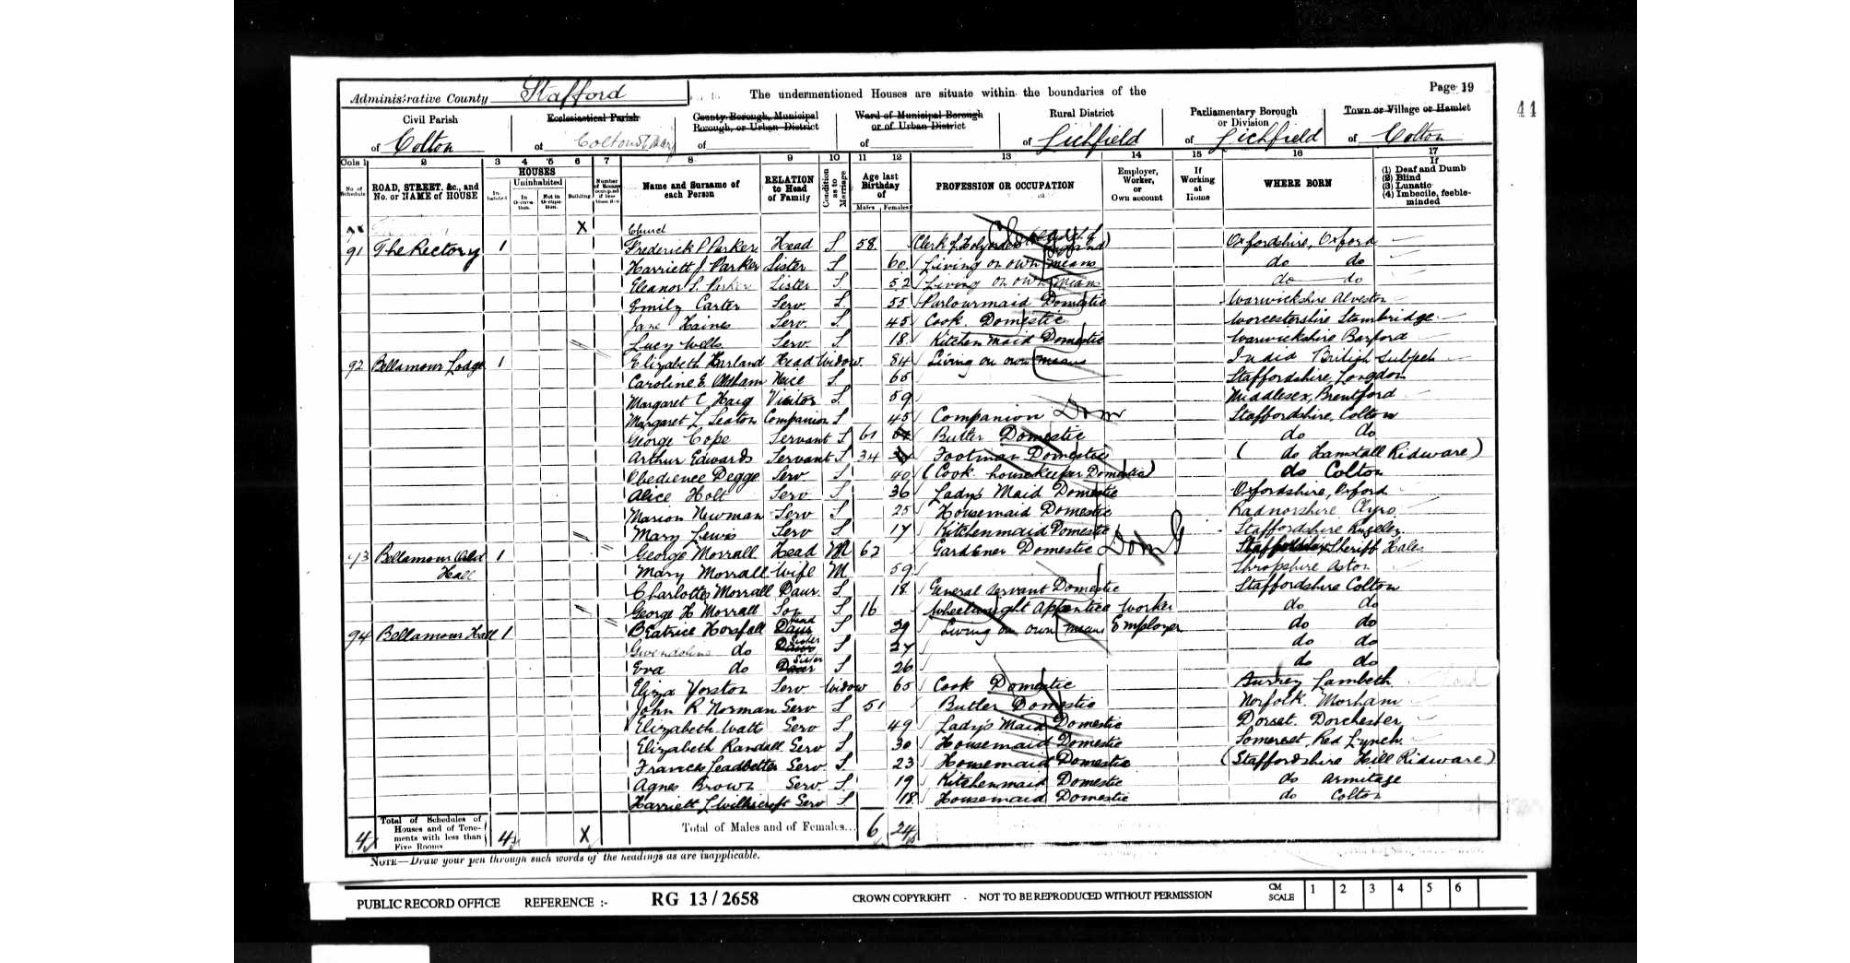 Administrative County Stafford The undermentioned Houses are situate within the boundaries of the Page 19
44
Civil Parish Ecclesiastical Parish County Borough, Municipal Borough, or Urban District Ward of Municipal Borough or of Urban District Rural District Parliamentary Borough or Division Town or Village or Hamlet
of Colton of Colton St Mary of of of Lichfield of Lichfield of Colton
Cols 1 2 3 4 5 6 7 8 9 10 11 12 13 14 15 16 17
No. of Schedule ROAD, STREET, &c., and No. or NAME of HOUSE HOUSES In-habited Uninhabited In Occupation. Not in Occupation. Building Name and Surname of each Person RELATION to Head of Family Condition as to Marriage Age last Birthday of Males Females PROFESSION OR OCCUPATION Employer, Worker, or Own account If Working at Home WHERE BORN If (1) Deaf and Dumb (2) Blind (3) Lunatic (4) Imbecile, feeble-minded
X Church
91 The Rectory 1 Frederick P Parker Head S 58 Clerk of Holy Oxfordshire, Oxford
Harriett J. Parker Sister S 60 Living on own means do do
Eleanor S. Parker Sister S. 52 Living on own means do do
Emily Carter Serv. S. 55 Parlourmaid Domestic Warwickshire Alveston
Jane Haines Serv. S. 45 Cook. Domestic Worcestershire Stambridge
Lucy Wells Serv. S. 18 Kitchen maid Domestic Warwickshire Barford
92 Bellamour Lodge 1 Elizabeth Harland Head Widow. 84 Living on own means India British Subject
Caroline E. Niece S. 65 Staffordshire, Longdon
Margaret C Haig Visitor S. 59 Middlesex, Brentford
Margaret L Seaton Companion S 45 Companion Dom Staffordshire, Colton
George Cope Servant S 61 Butler Domestic do do
Arthur Edwards Servant S 34 Footman Domestic ( do Hamstall Ridware)
Obedience Degge Serv S 40 (Cook housekeeper Domestic) do Colton
Alice Holt Serv S 36 Lady's Maid Domestic Oxfordshire, Oxford
Marion Newman Serv S 25 Housemaid Domestic Radnorshire Clyro
Mary Lewis Serv S. 17 Kitchenmaid Domestic Staffordshire Rugeley
93 Bellamour Old Hall 1 George Morrall Head M 62 Gardener Domestic Dom G Staffordshire Sheriff Hales
Mary Morrall Wife M 59 Shropshire Aston
Charlotte Morrall Daur. S. 18 General Servant Domestic Staffordshire Colton
George H Morrall Son S 16 Wheelwright Apprentice Worker do do
94 Bellamour Hall 1 Beatrice Horsfall Head Daur S 29 Living on own means Employer do do
Gwendoline do Sister Daur S 27 do do
Eva do Sister Daur S 26 do do
Eliza Yorston Serv Widow 65 Cook Domestic Surrey Lambeth
John R Norman Serv S 51 Butler Domestic Norfolk. Morham
Elizabeth Watt Serv S 49 Lady's Maid Domestic Dorset. Dorchester
Elizabeth Randall Serv S. 30 Housemaid Domestic Somerset, Red Lynch
Frances Leadbetter Serv. S. 23 Housemaid Domestic (Staffordshire Hill Ridware)
Agnes Brown Serv. S. 19 Kitchenmaid Domestic do Armitage
Harriett Serv S 18 Housemaid Domestic do Colton
4 Total of Schedules of Houses and of Tene-ments with less than Five Rooms 4 X Total of Males and of Females... 6 24
NOTE—Draw your pen through such words of the headings as are inapplicable.
PUBLIC RECORD OFFICE REFERENCE :- RG 13/2658 CROWN COPYRIGHT - NOT TO BE REPRODUCED WITHOUT PERMISSION CM SCALE 1 2 3 4 5 6